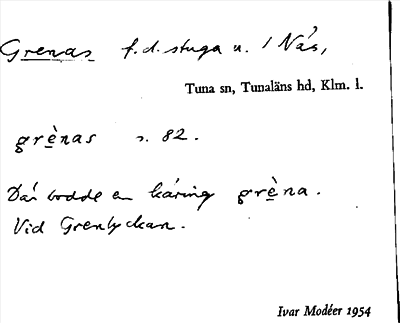 Grenas f.d. stuga u. / Näs,
Tuna sn, Tunaläns hd, Klm. l.
grènas s. 82.
Där bodde en käring grèna.
Vid Grenlyckan.
Ivar Modéer 1954